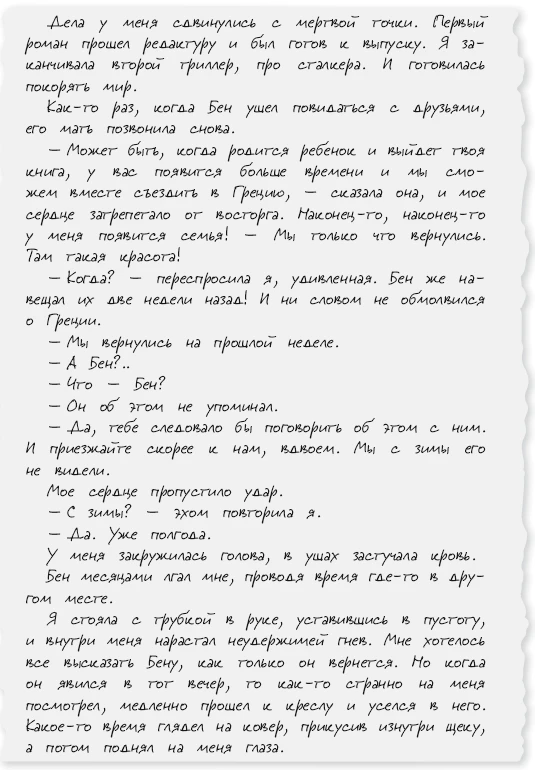 Дела у меня сдвинулись с мертвой точки. Первый
роман прошел редактуру и был готов к выпуску. Я за-
канчивала второй триллер, про сталкера. И готовилась
покорять мир.
Как-то раз, когда Бен ушел повидаться с друзьями,
его мать позвонила снова.
— Может быть, когда родится ребенок и выйдет твоя
книга, у вас появится больше времени и мы смо-
жем вместе съездить в Грецию, — сказала она, и мое
сердце затрепетало от восторга. Наконец-то, наконец-то
у меня появится семья! — Мы только что вернулись.
Там такая красота!
— Когда? — переспросила я, удивленная. Бен же на-
вещал их две недели назад! И ни словом не обмолвился
о Греции.
— Мы вернулись на прошлой неделе.
— А Бен?..
— Что — Бен?
— Он об этом не упоминал.
— Да, тебе следовало бы поговорить об этом с ним.
И приезжайте скорее к нам, вдвоем. Мы с зимы его
не видели.
Мое сердце пропустило удар.
— С зимы? — эхом повторила я.
— Да. Уже полгода.
У меня закружилась голова, в ушах застучала кровь.
Бен месяцами лгал мне, проводя время где-то в дру-
гом месте.
Я стояла с трубкой в руке, уставившись в пустоту,
и внутри меня нарастал неудержимый гнев. Мне хотелось
все высказать Бену, как только он вернется. Но когда
он явился в тот вечер, то как-то странно на меня
посмотрел, медленно прошел к креслу и уселся в него.
Какое-то время глядел на ковер, прикусив изнутри щеку,
а потом поднял на меня глаза.